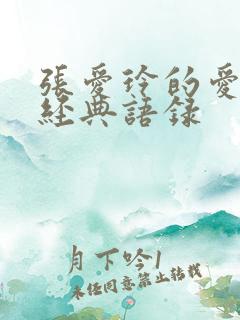 張愛玲的愛
經典語錄
月下吟1
未經同意禁止轉載